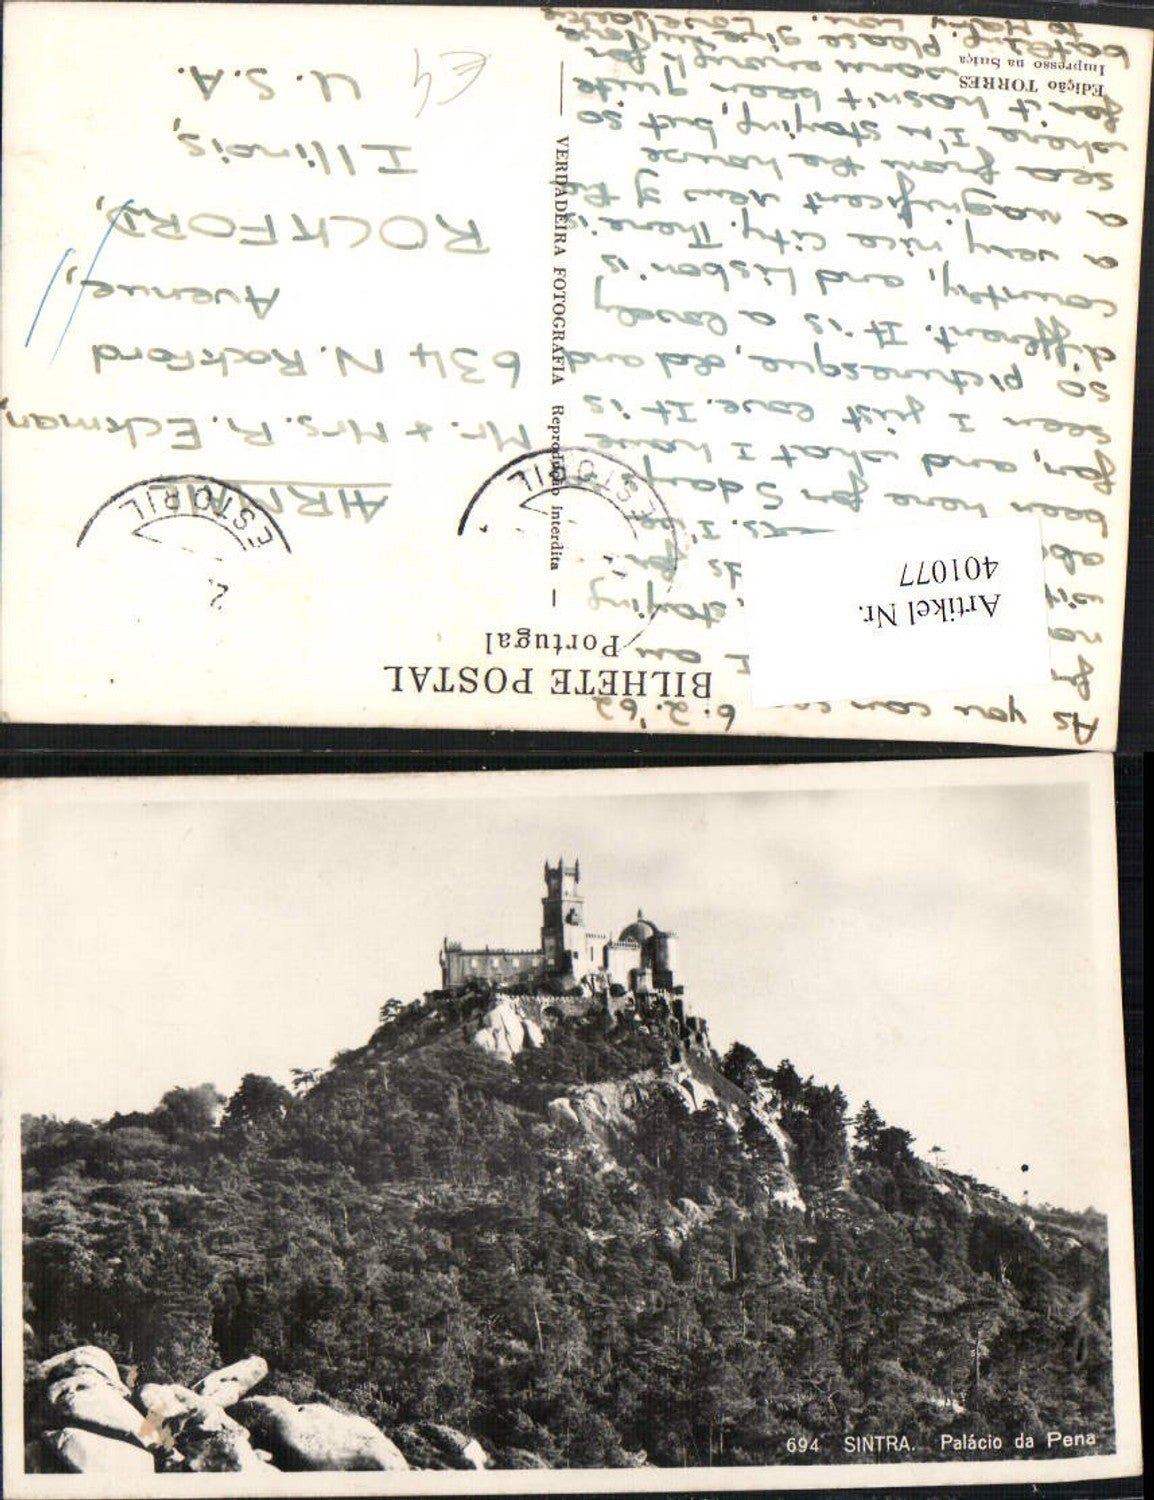 As you can 6.2.'62
I am
staying
for
I've
been here for 5 days
far, and what I have
seen I just love. It is
so picturesque, old and
different. It is a lovely
country, and Lisbon is
a very nice city. There is
a magnificent view of the
sea from the house
where I'm staying, but so
far it hasn't been quite
warm enough for
bathing. Please give my love
to
BILHETE POSTAL
Portugal
VERDADEIRA FOTOGRAFIA Reprodução Interdita
Edição TORRES
Impresso na Suiça
AIRMAIL
Mr. + Mrs. R. Eckman,
634 N. Rockford
Avenue,
ROCKFORD,
Illinois,
U.S.A.
ESTORIL
ESTORIL
Artikel Nr.
401077
694 SINTRA. Palácio da Pena